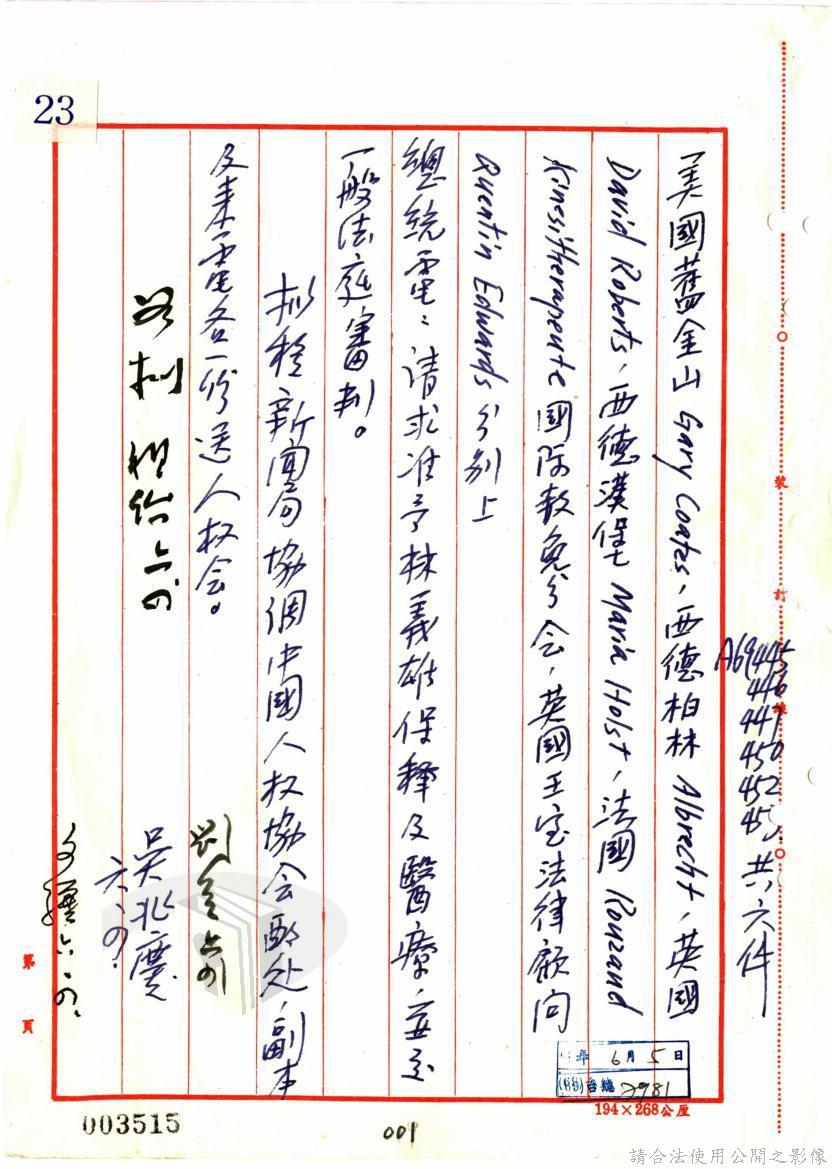 23
A69445
446
441
450
452
共六件
美國舊金山 Gary Coates、西德柏林 Albrecht、英國
David Roberts、西德漢堡 Maria Holst、法國 Rouzand
Kinesitherapeute 國際赦免分会、英國王室法律顧问
Quentin Edwards 分别上
總統電：請求准予林義雄保釋及醫療，並交
一般法庭審判。
拟移新聞局協調中國人权協会酌处，副本
及来電各一份送人权会。
劉
如拟
吳兆慶
六、四、
六、四、
裝
訂
線
第
頁
年6月5日
(69)台總2981
194×268公厘
003515
001
請合法使用公開之影像